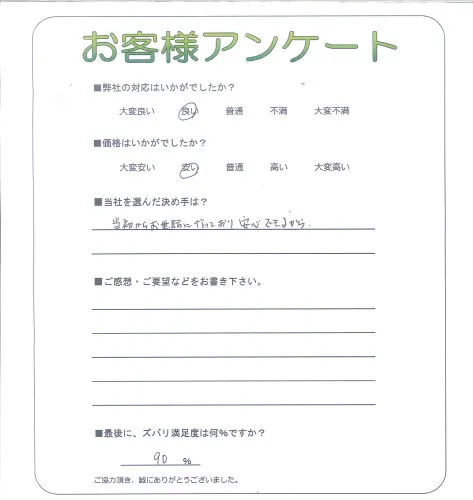 お客様アンケート
■弊社の対応はいかがでしたか？
大変良い 良い 普通 不満 大変不満
■価格はいかがでしたか？
大変安い 安い 普通 高い 大変高い
■当社を選んだ決め手は？
当初からお世話になっており安心できるから.
■ご感想・ご要望などをお書き下さい。
■最後に、ズバリ満足度は何%ですか？
90 %
ご協力頂き、誠にありがとうございました。